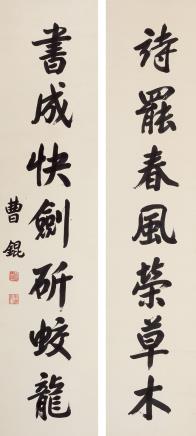 詩罷春風榮草木
書成快劍斫蛟龍
曹錕